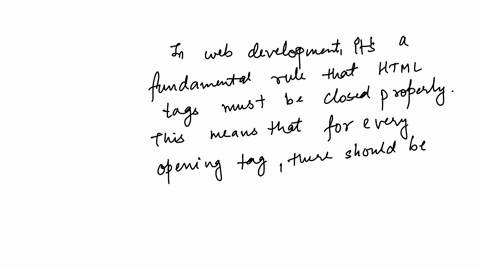 In web development, it's a
fundamental rule that HTML
tags must be closed properly.
This means that for every
opening tag, there should be